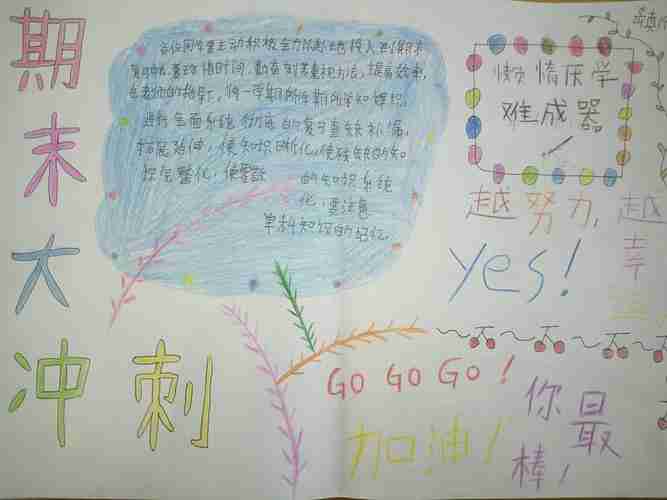 期末大冲刺
各位同学要主动积极全力以赴地投入到期末
复习中去,要珍惜时间,勤奋刻苦重视方法,提高效率,
在老师的指导下,将一学期所学期所学知识
进行全面系统彻底的复习查缺补漏,
拓展延伸,使知识
整化,使零散的知识系统
化,要注意
单科知识的记忆.
懒惰厌学
难成器
越努力,越
幸运
yes!
GO GO GO!
加油!
你最
棒!